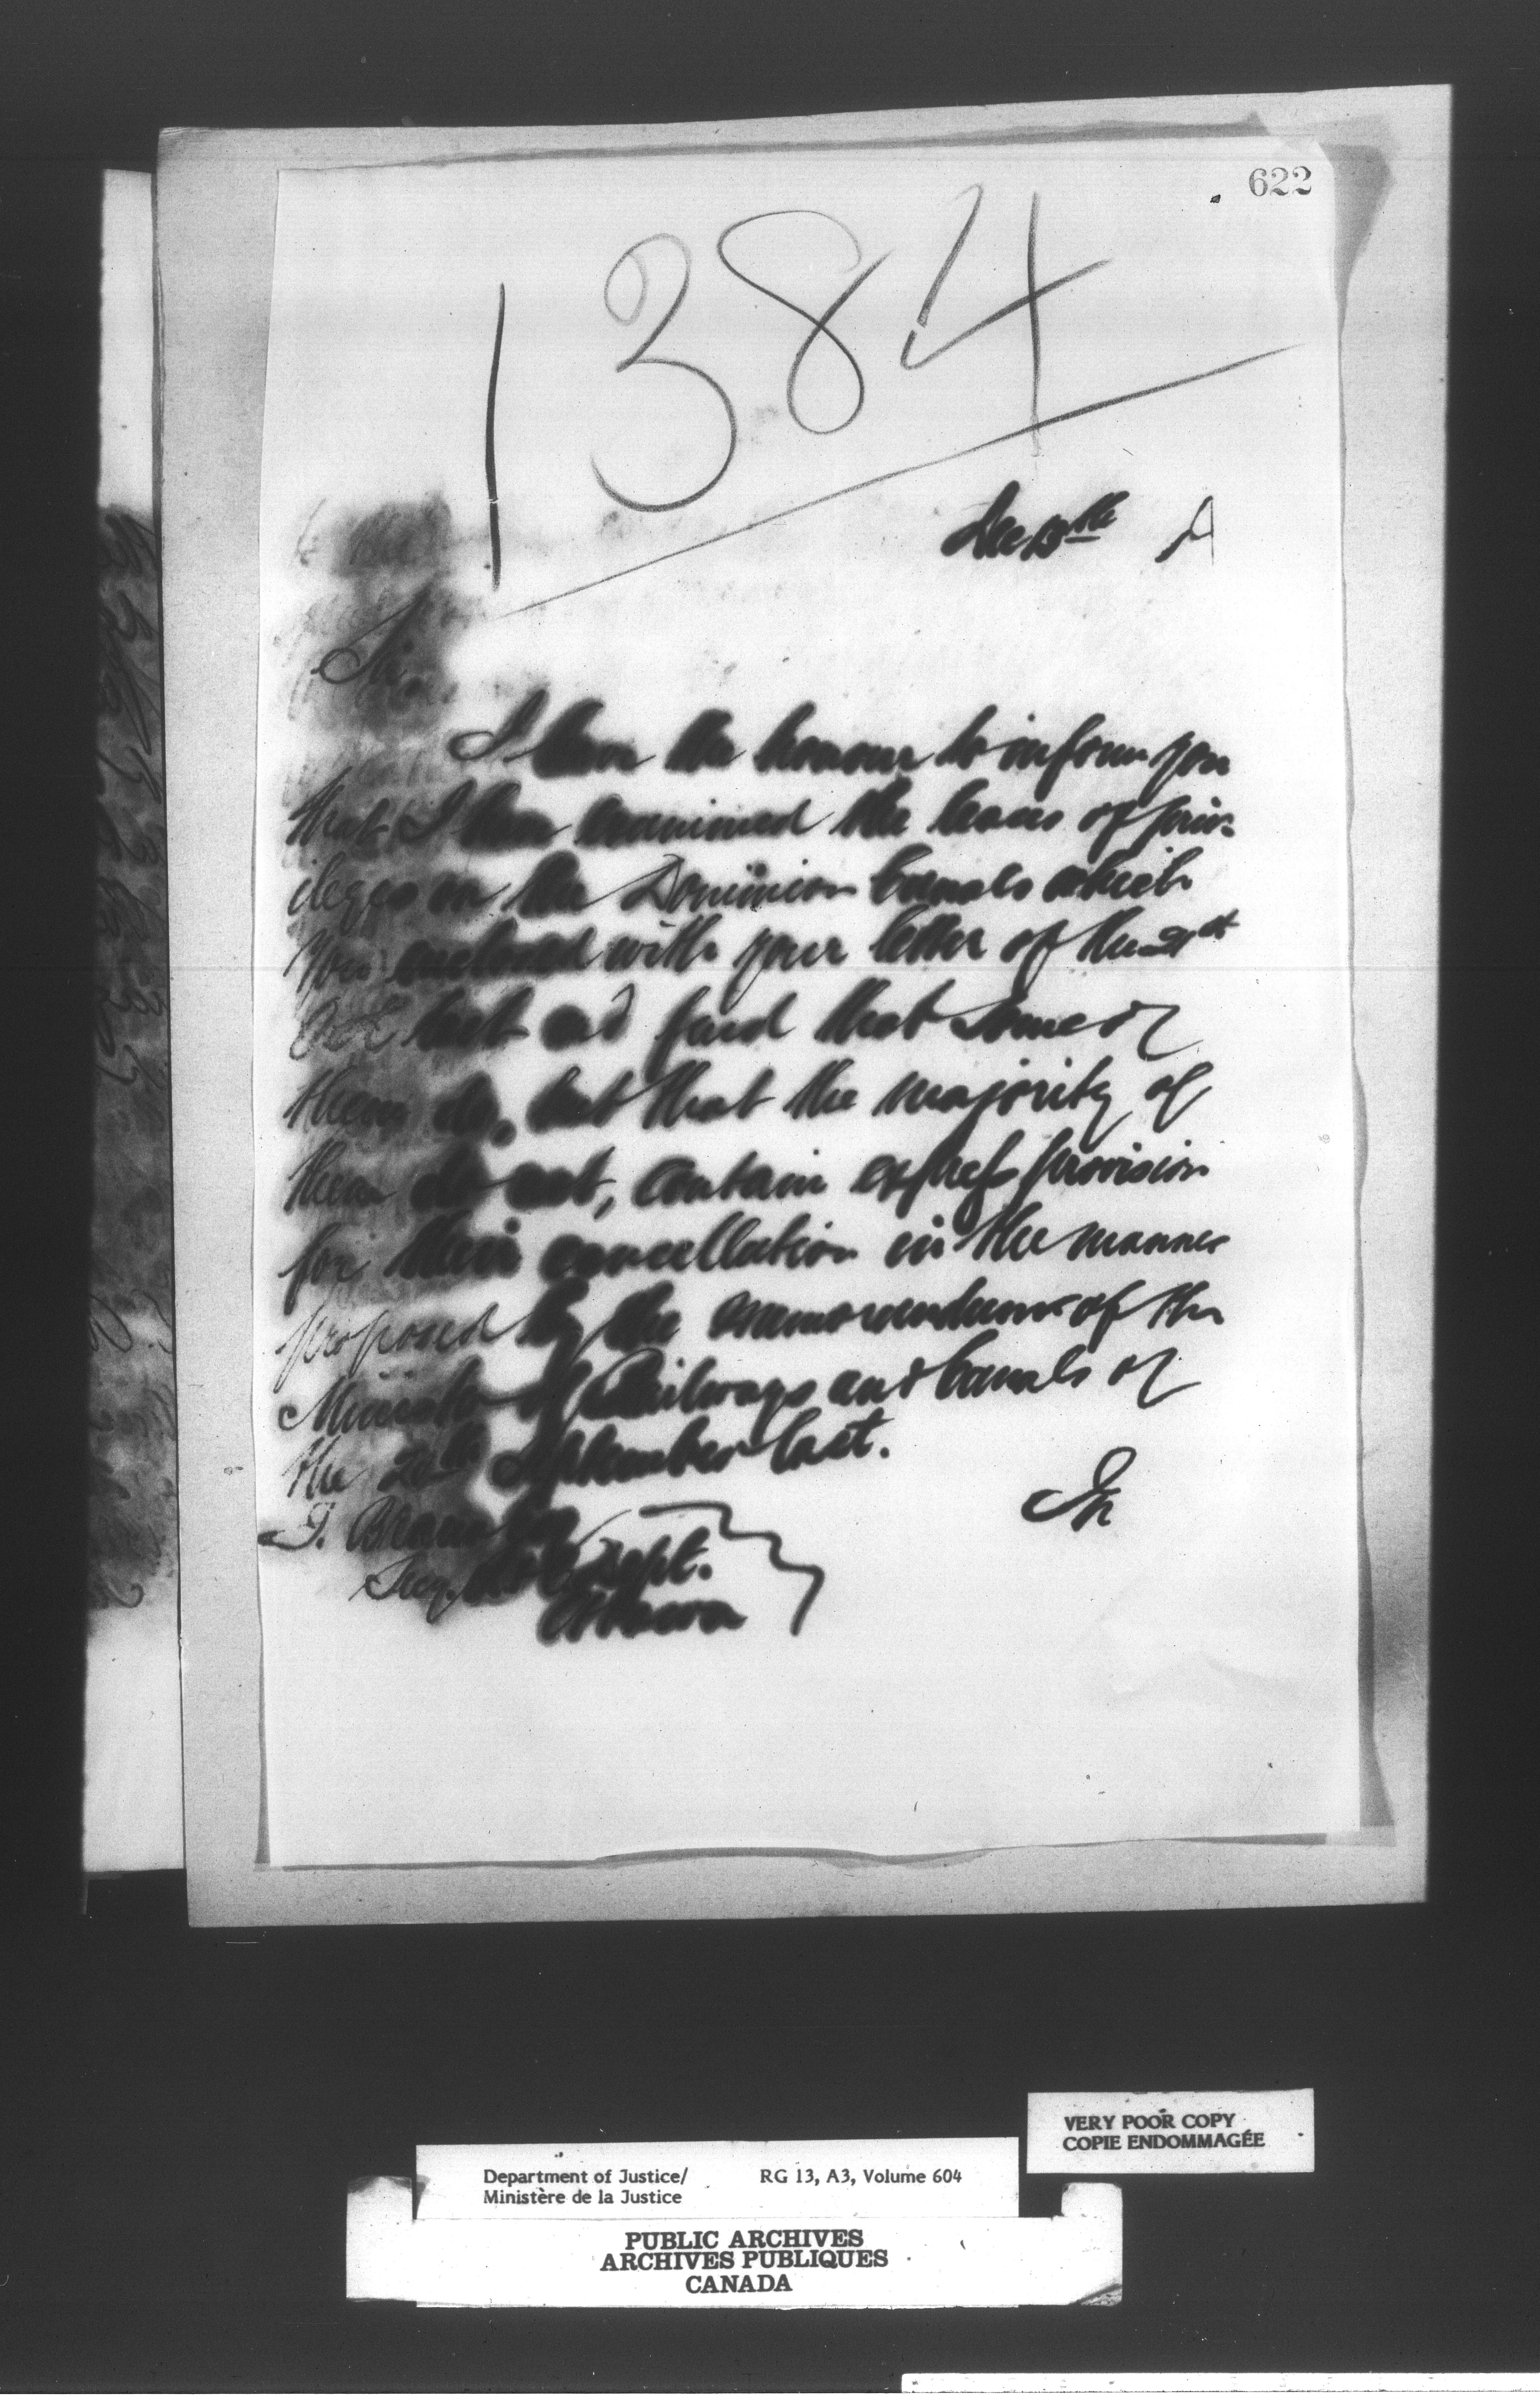 622
1384
Dec 13th
Sir
I have the honour to inform you
that I have examined the leases of priv-
ileges on the Dominion Canals which
you enclosed with your letter of the 21st
Oct last and find that some of
them do, but that the majority of
them do not, contain express provision
for their cancellation in the manner
proposed by the memorandum of the
Minister of Railways and Canals of
the 20th September last.
F. Braun
Secy. Dept.
Ottawa
VERY POOR COPY
COPIE ENDOMMAGÉE
Department of Justice/ RG 13, A3, Volume 604
Ministère de la Justice
PUBLIC ARCHIVES
ARCHIVES PUBLIQUES
CANADA